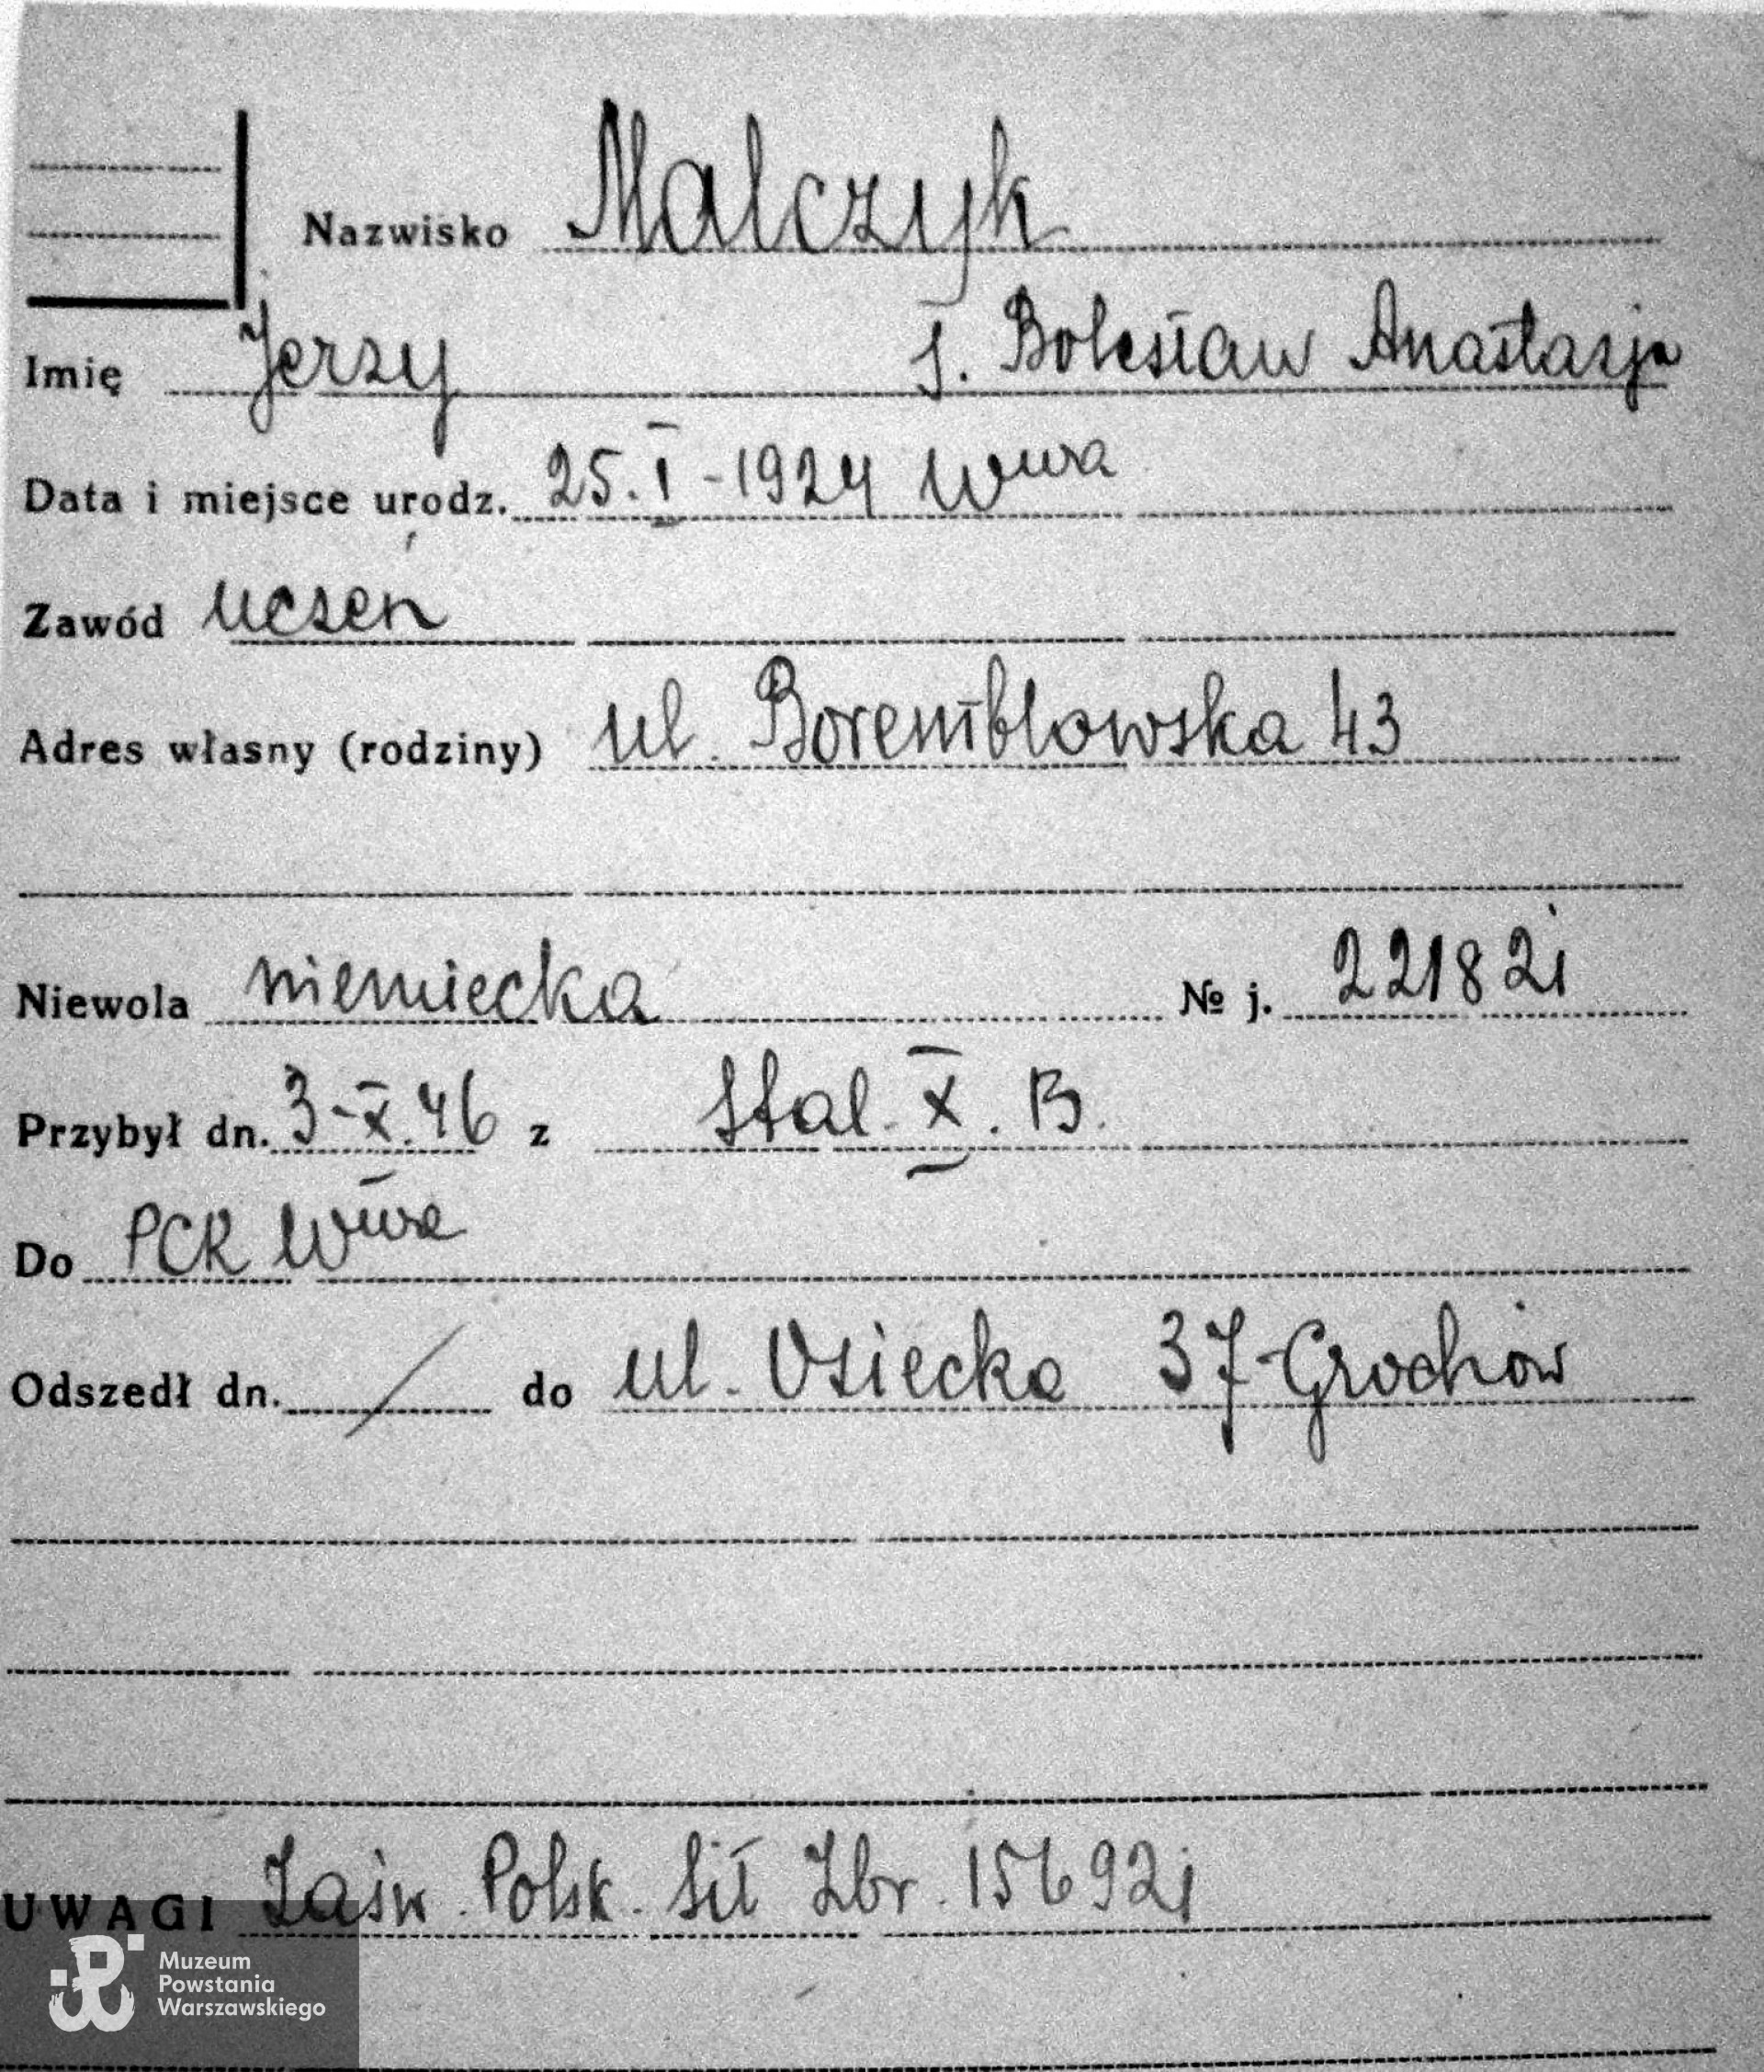 Nazwisko Malczyk
Imię Jerzy s. Bolesław Anastazja
Data i miejsce urodz. 25.I-1924 Wwa
Zawód uczeń
Adres własny (rodziny) ul. Boremblowska 43
Niewola niemiecka № j. 221821
Przybył dn. 3-X.46 z Stal. X. B.
Do PCK Wwa
Odszedł dn. / do ul. Osiecka 37-Grochów
UWAGI Zaśw. Polsk. Sił Zbr. 156921
Muzeum
Powstania
Warszawskiego